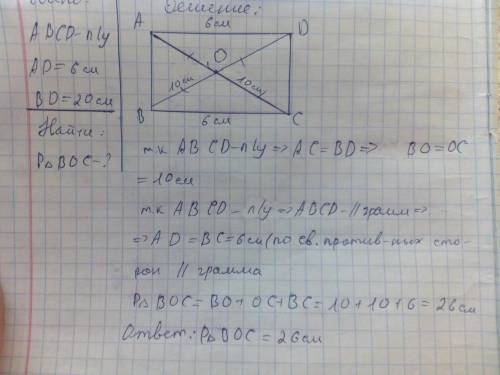 Решение:
ABCD-п/у
AD=6см
BD=20см
Найти:
P△BOC-?
A
6см
D
O
10см
10см
B
6см
C
т.к ABCD-п/у => AC=BD => BO=OC
=10см
т.к ABCD-п/у => ABCD-||грамм =>
=> AD=BC=6см(по св. против-ных сто-
рон ||грамма
P△BOC=BO+OC+BC=10+10+6=26см
Ответ: P△BOC=26см